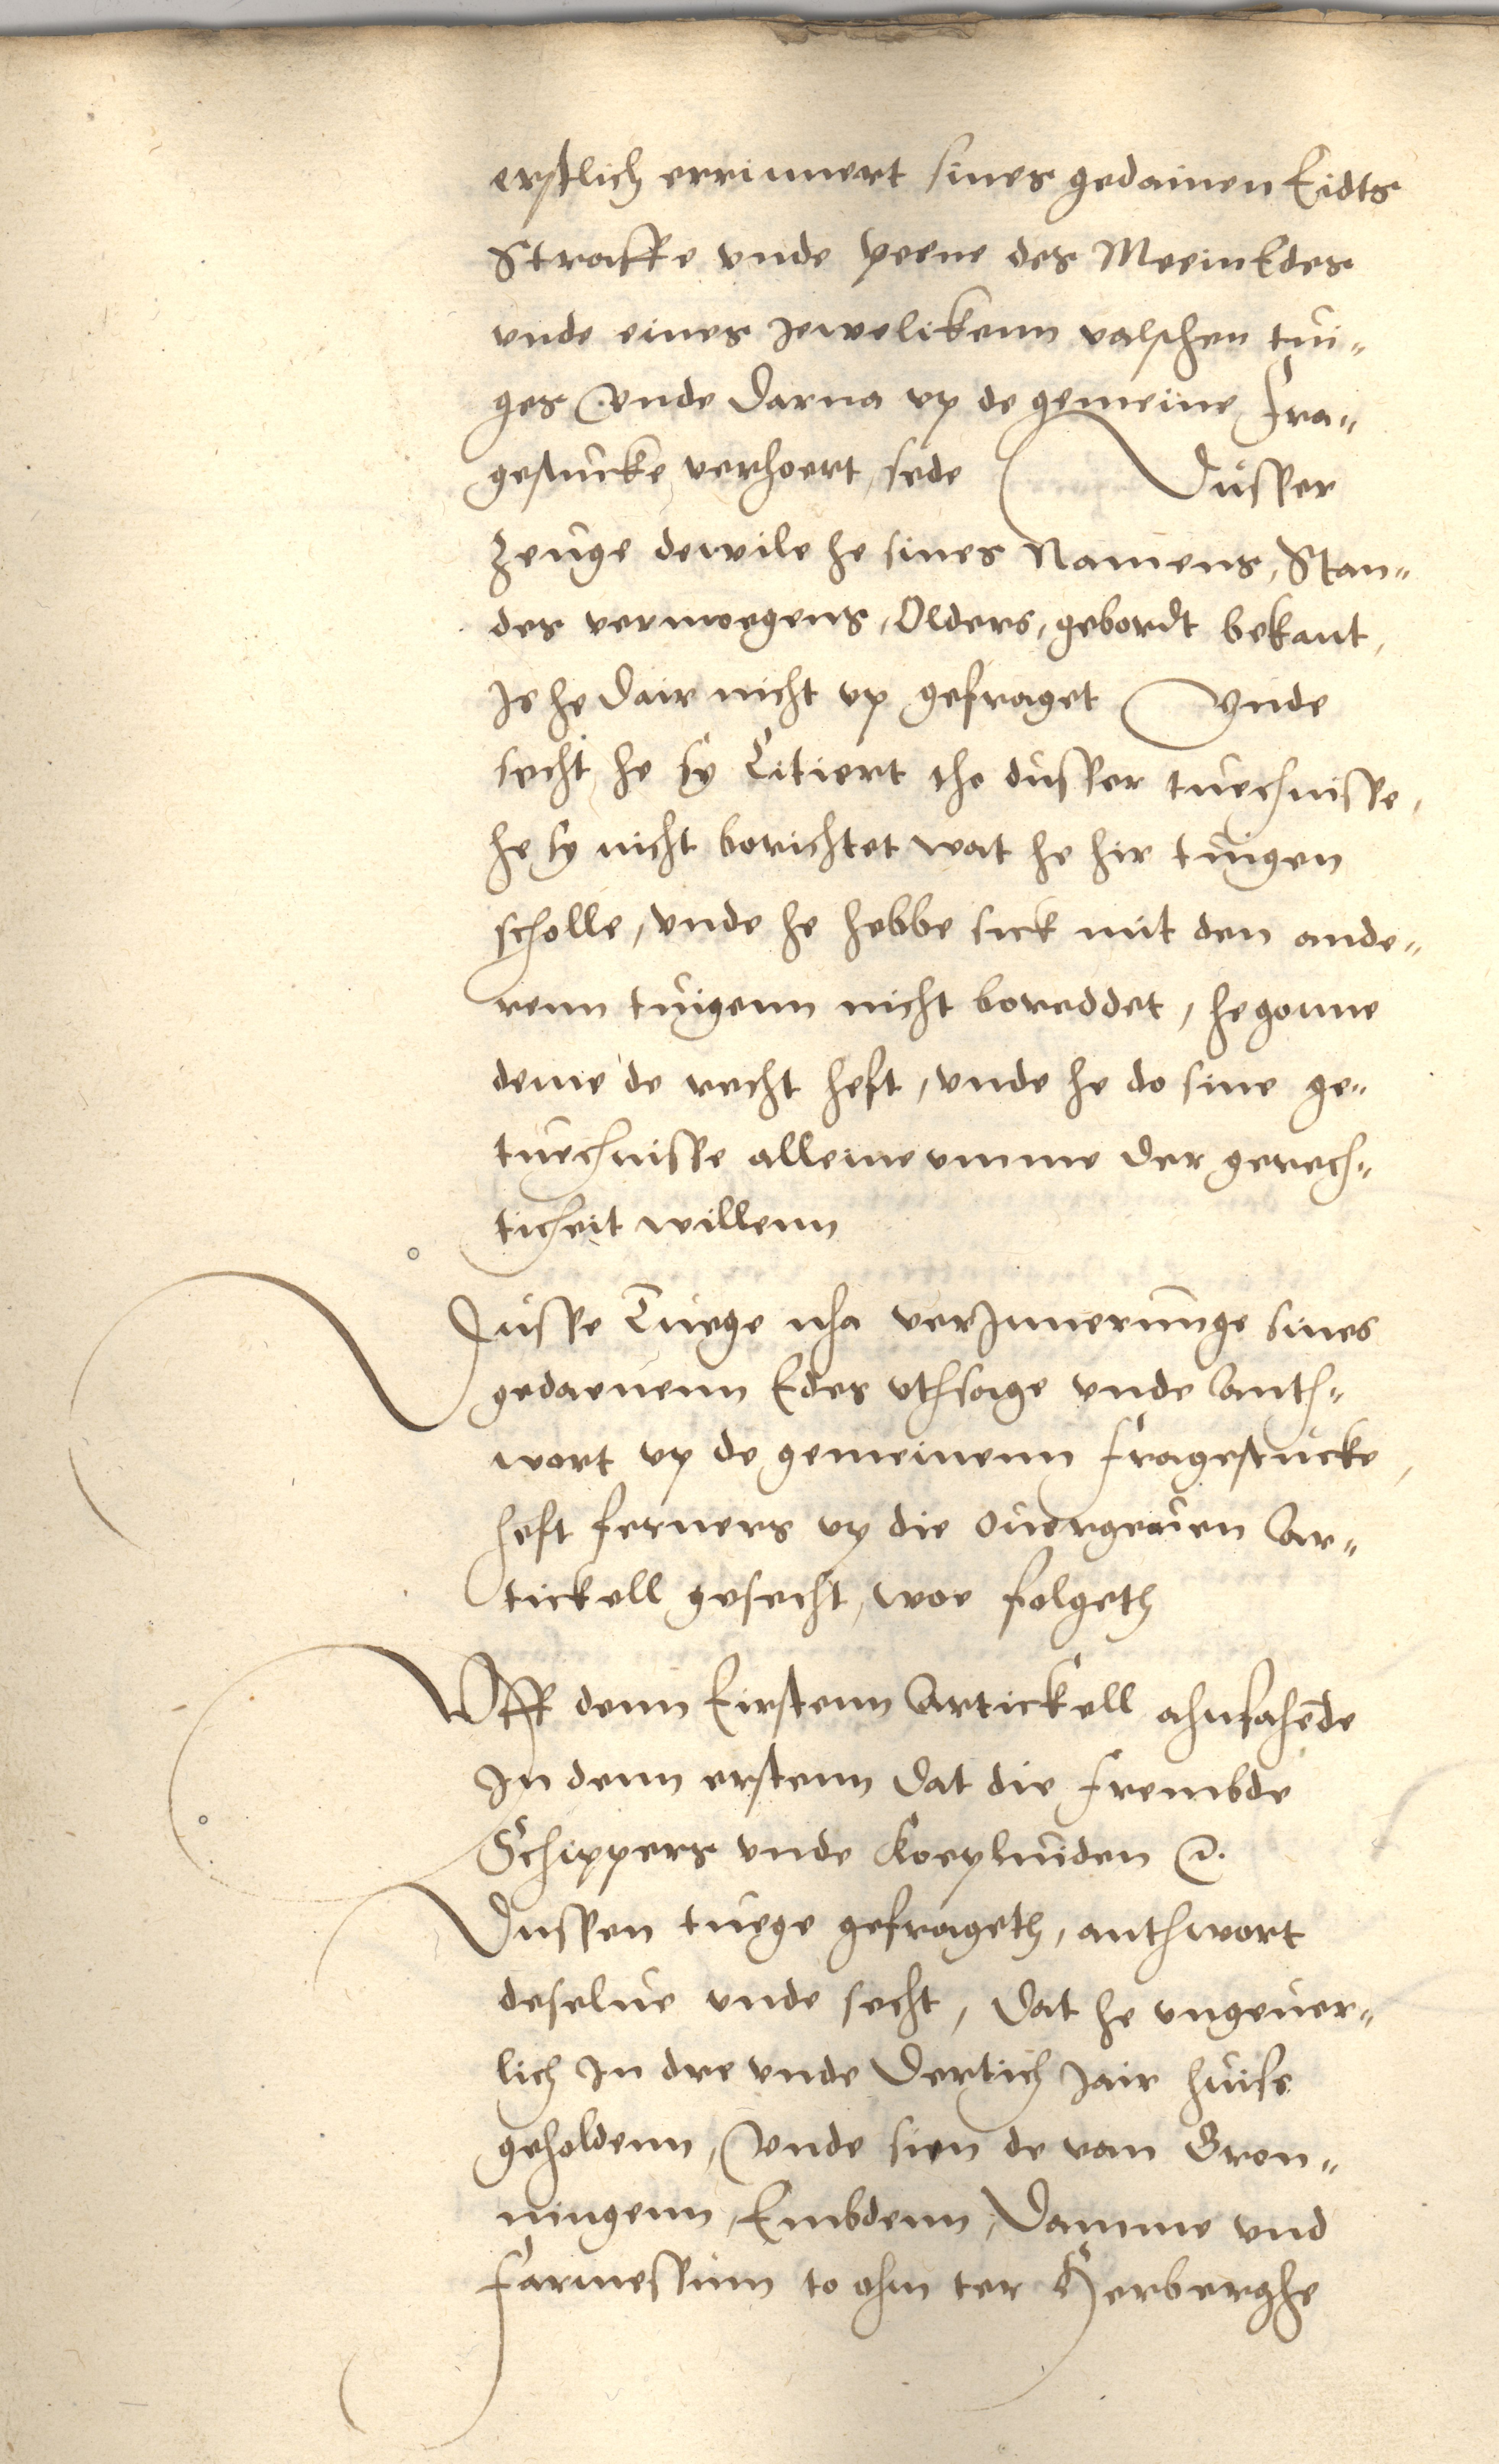 erstlich errinnert sines gedainen Eidts
Straffe vnde peene des MeeinEdes
vnde eines Jewelikenn valschen tui-
ges Vnde darna vp de gemeine Fra-
gestucke verhoert, sede Dusser
Zeuge dewile he sines Namens, Stan-
des vermoegens, Olders, gebordt bekant,
Is he dair nicht vp gefraget Vnde
secht he sy Citiert tho dusser tuechnisse,
he sy nicht borichtet wat he hir tuigen
scholle, vnde he hebbe sick mit den ande-
renn tuigenn nicht boreddet, he gonne
deme de recht heft, vnde he do sine ge-
tuechnisse alleine vmme der gerech-
ticheit willenn
Dusse Tuege nha verJnnerunge sines
gedaenenn Edes vthsage vnde Anth-
wort vp de gemeinenn fragestucke,
heft ferners vp die ouergeuen Ar-
tickell gesecht, woe folgeth
Vff denn Eirstenn Artickell ahnfahende
In denn erstenn dat die frembde
Schippers vnde Koepluiden etc.
Dussen tuege gefrageth, anthwort
deselue vnde secht, dat he vngeuer-
lich In dre vnde dertich Jair huise
geholdenn, Vnde sien de van Gron-
ningenn, Embdenn, Damme vnd
Farmessum to ohm ter Herberghe